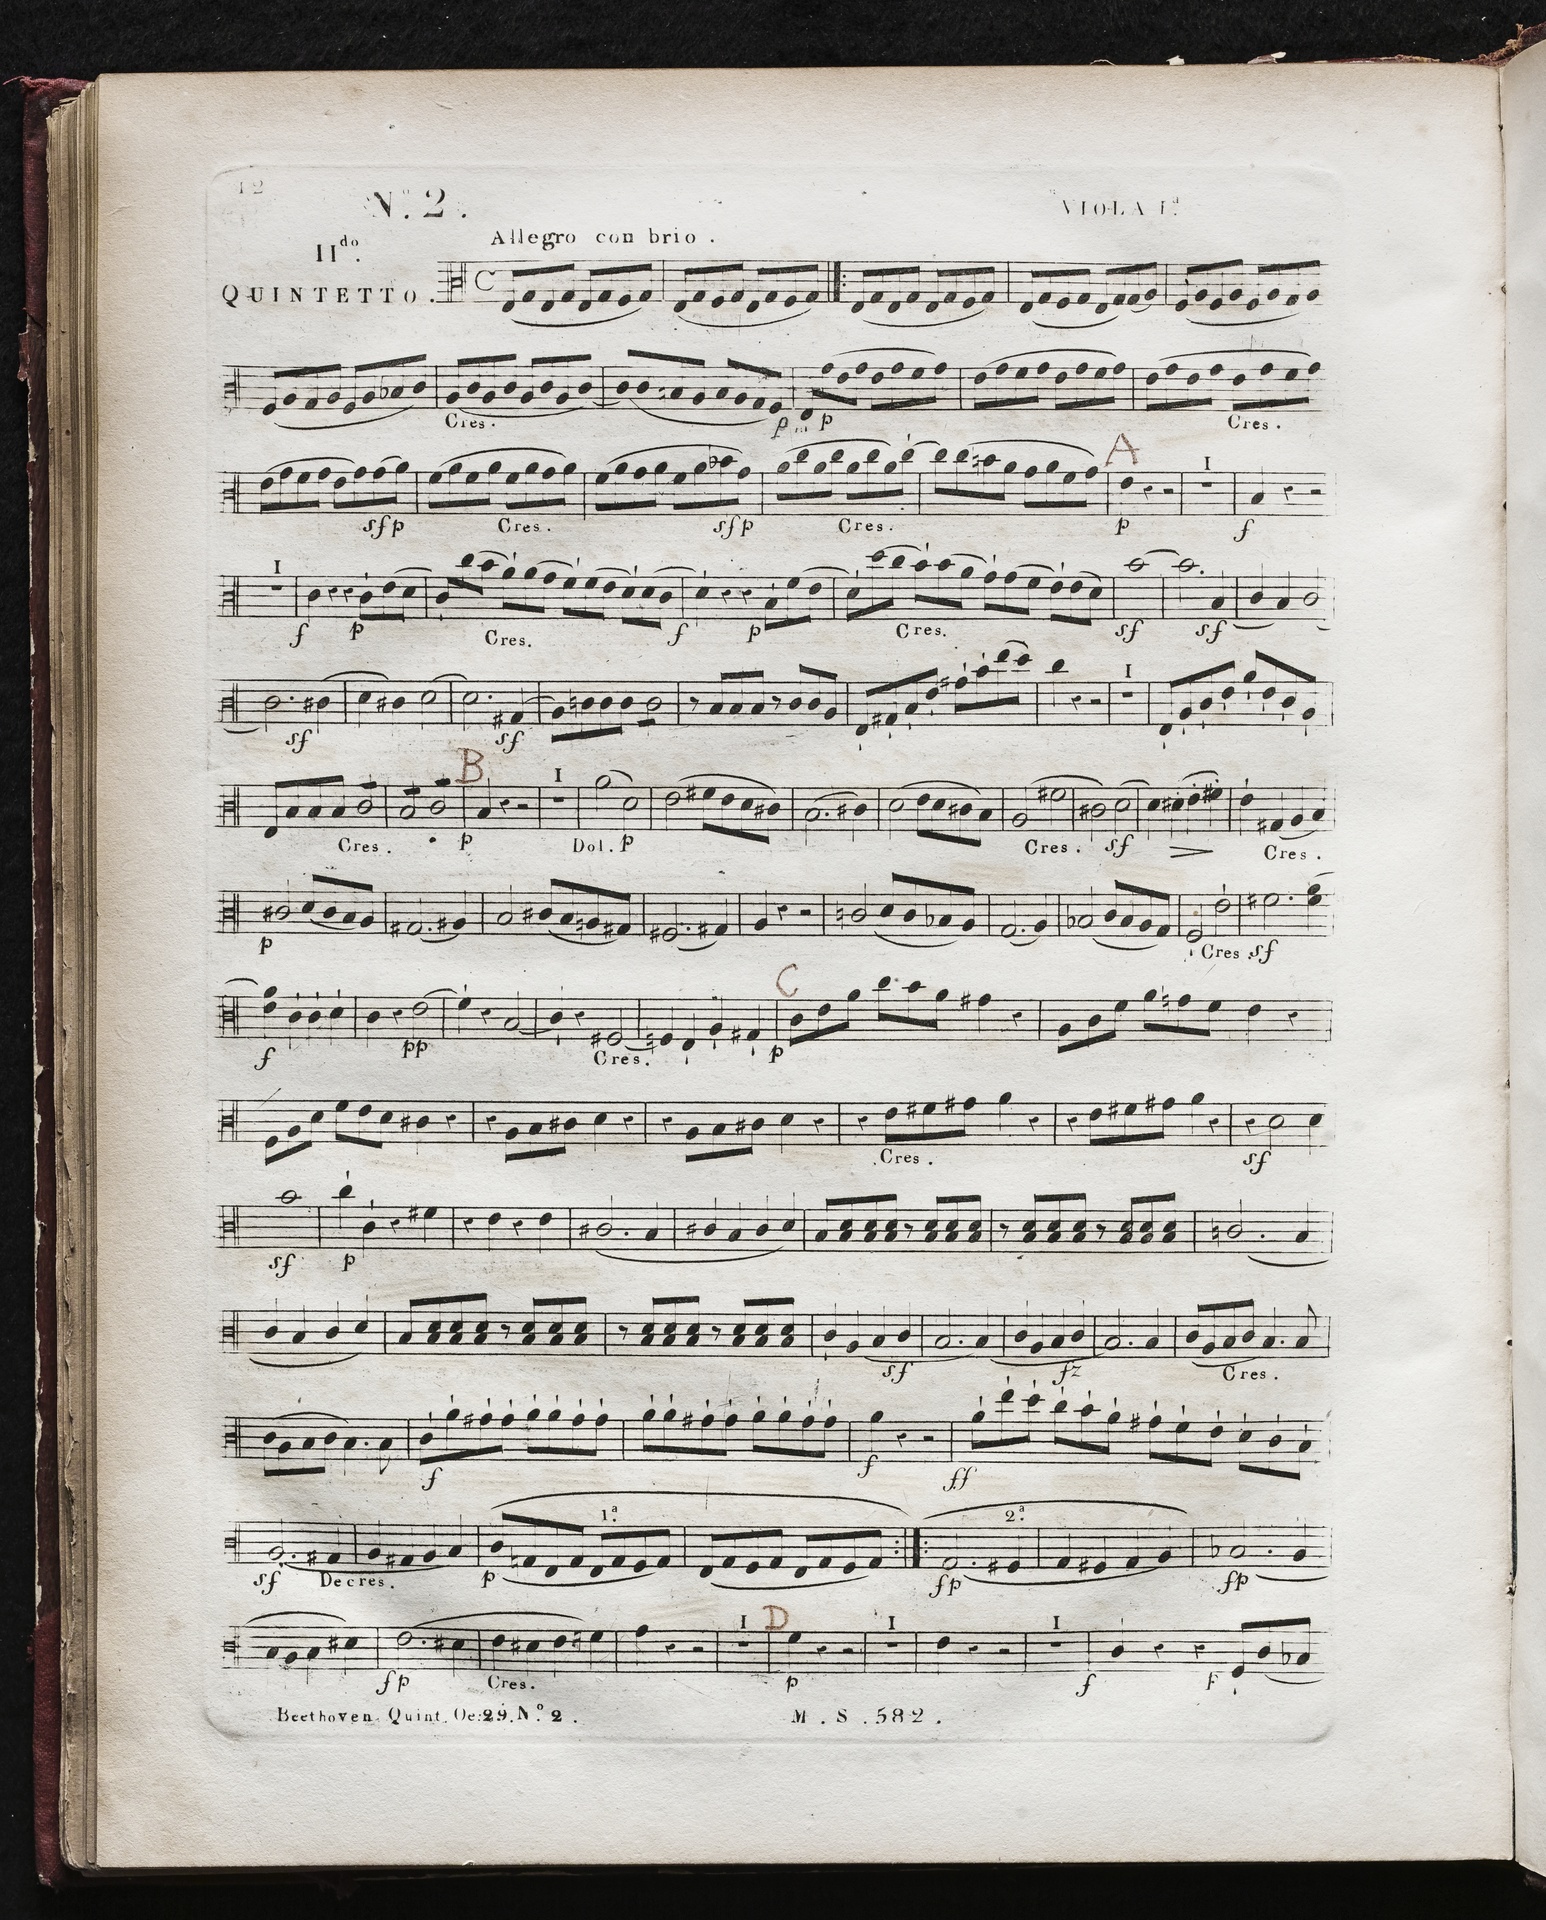 12
N.º 2.
VIOLA I.ª
Allegro con brio.
II.do
QUINTETTO.
Cres. p p Cres.
A
I
sfp Cres. sfp Cres. p f
I
f p Cres. f p Cres. sf sf
I
sf sf
B
I
Cres. p Dol. p Cres. sf Cres.
p Cres. sf
C
f pp Cres. p
Cres. sf
sf p
sf fz Cres.
f f ff
1.ª 2.ª
sf Decres. p fp fp
I D I I
fp Cres. p f p
Beethoven Quint. Oe: 29. N.º 2.
M. S. 582.